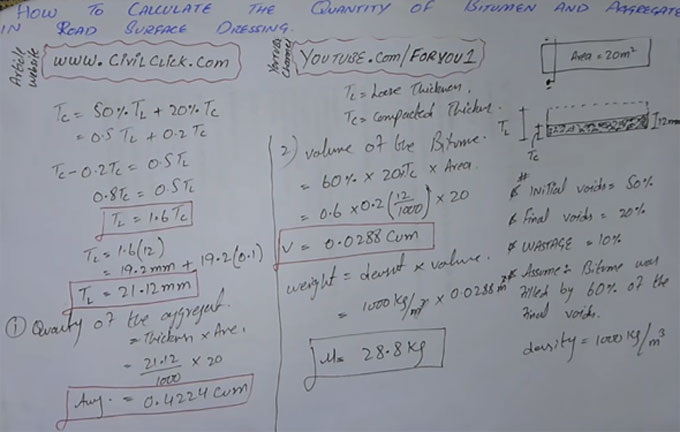 HOW TO CALCULATE THE QUANTITY OF BITUMEN AND AGGREGATE
IN ROAD SURFACE DRESSING.
Article website
www.CivilClick.com
Tc = 50% TL + 20% Tc
= 0.5 TL + 0.2 Tc
Tc - 0.2Tc = 0.5TL
0.8Tc = 0.5TL
TL = 1.6Tc
TL = 1.6(12)
= 19.2mm + 19.2(0.1)
TL = 21.12mm
① Quantity of the aggregat.
= Thickness x Are.
= 21.12/1000 x 20
= 0.4224 Cum
channel
YOUTUBE.Com/FORYOU1
TL = Loose Thickness.
Tc = Compacted Thickne.
2) volume of the Bitume.
= 60% x 20%Tc x Area.
= 0.6 x 0.2(12/1000) x 20
V = 0.0288 Cum
weight = densit x volume.
= 1000 kg/m³ x 0.0288m³
M = 28.8 kg
Area = 20m²
TL
Tc
12mm
# Initial voids = 50%
# Final voids = 20%
# WASTAGE = 10%
# Assume: Bitume was
filled by 60% of the
final voids.
density = 1000 kg/m³